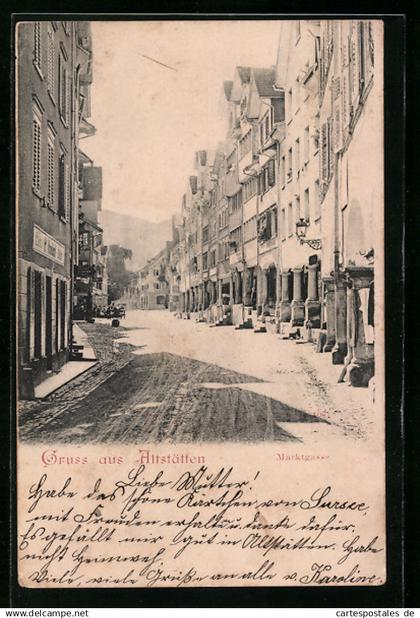 Gruss aus Altstätten
Marktgasse
Liebe Mutter!
Habe das schöne Kärtchen von Sursee
mit Freuden erhalten u. dank dafür.
Es gefällt mir gut in Altstätten. Habe
nicht Heimweh.
Viele, viele Grüße an alle v. Karoline
© www.cartes-postales.de